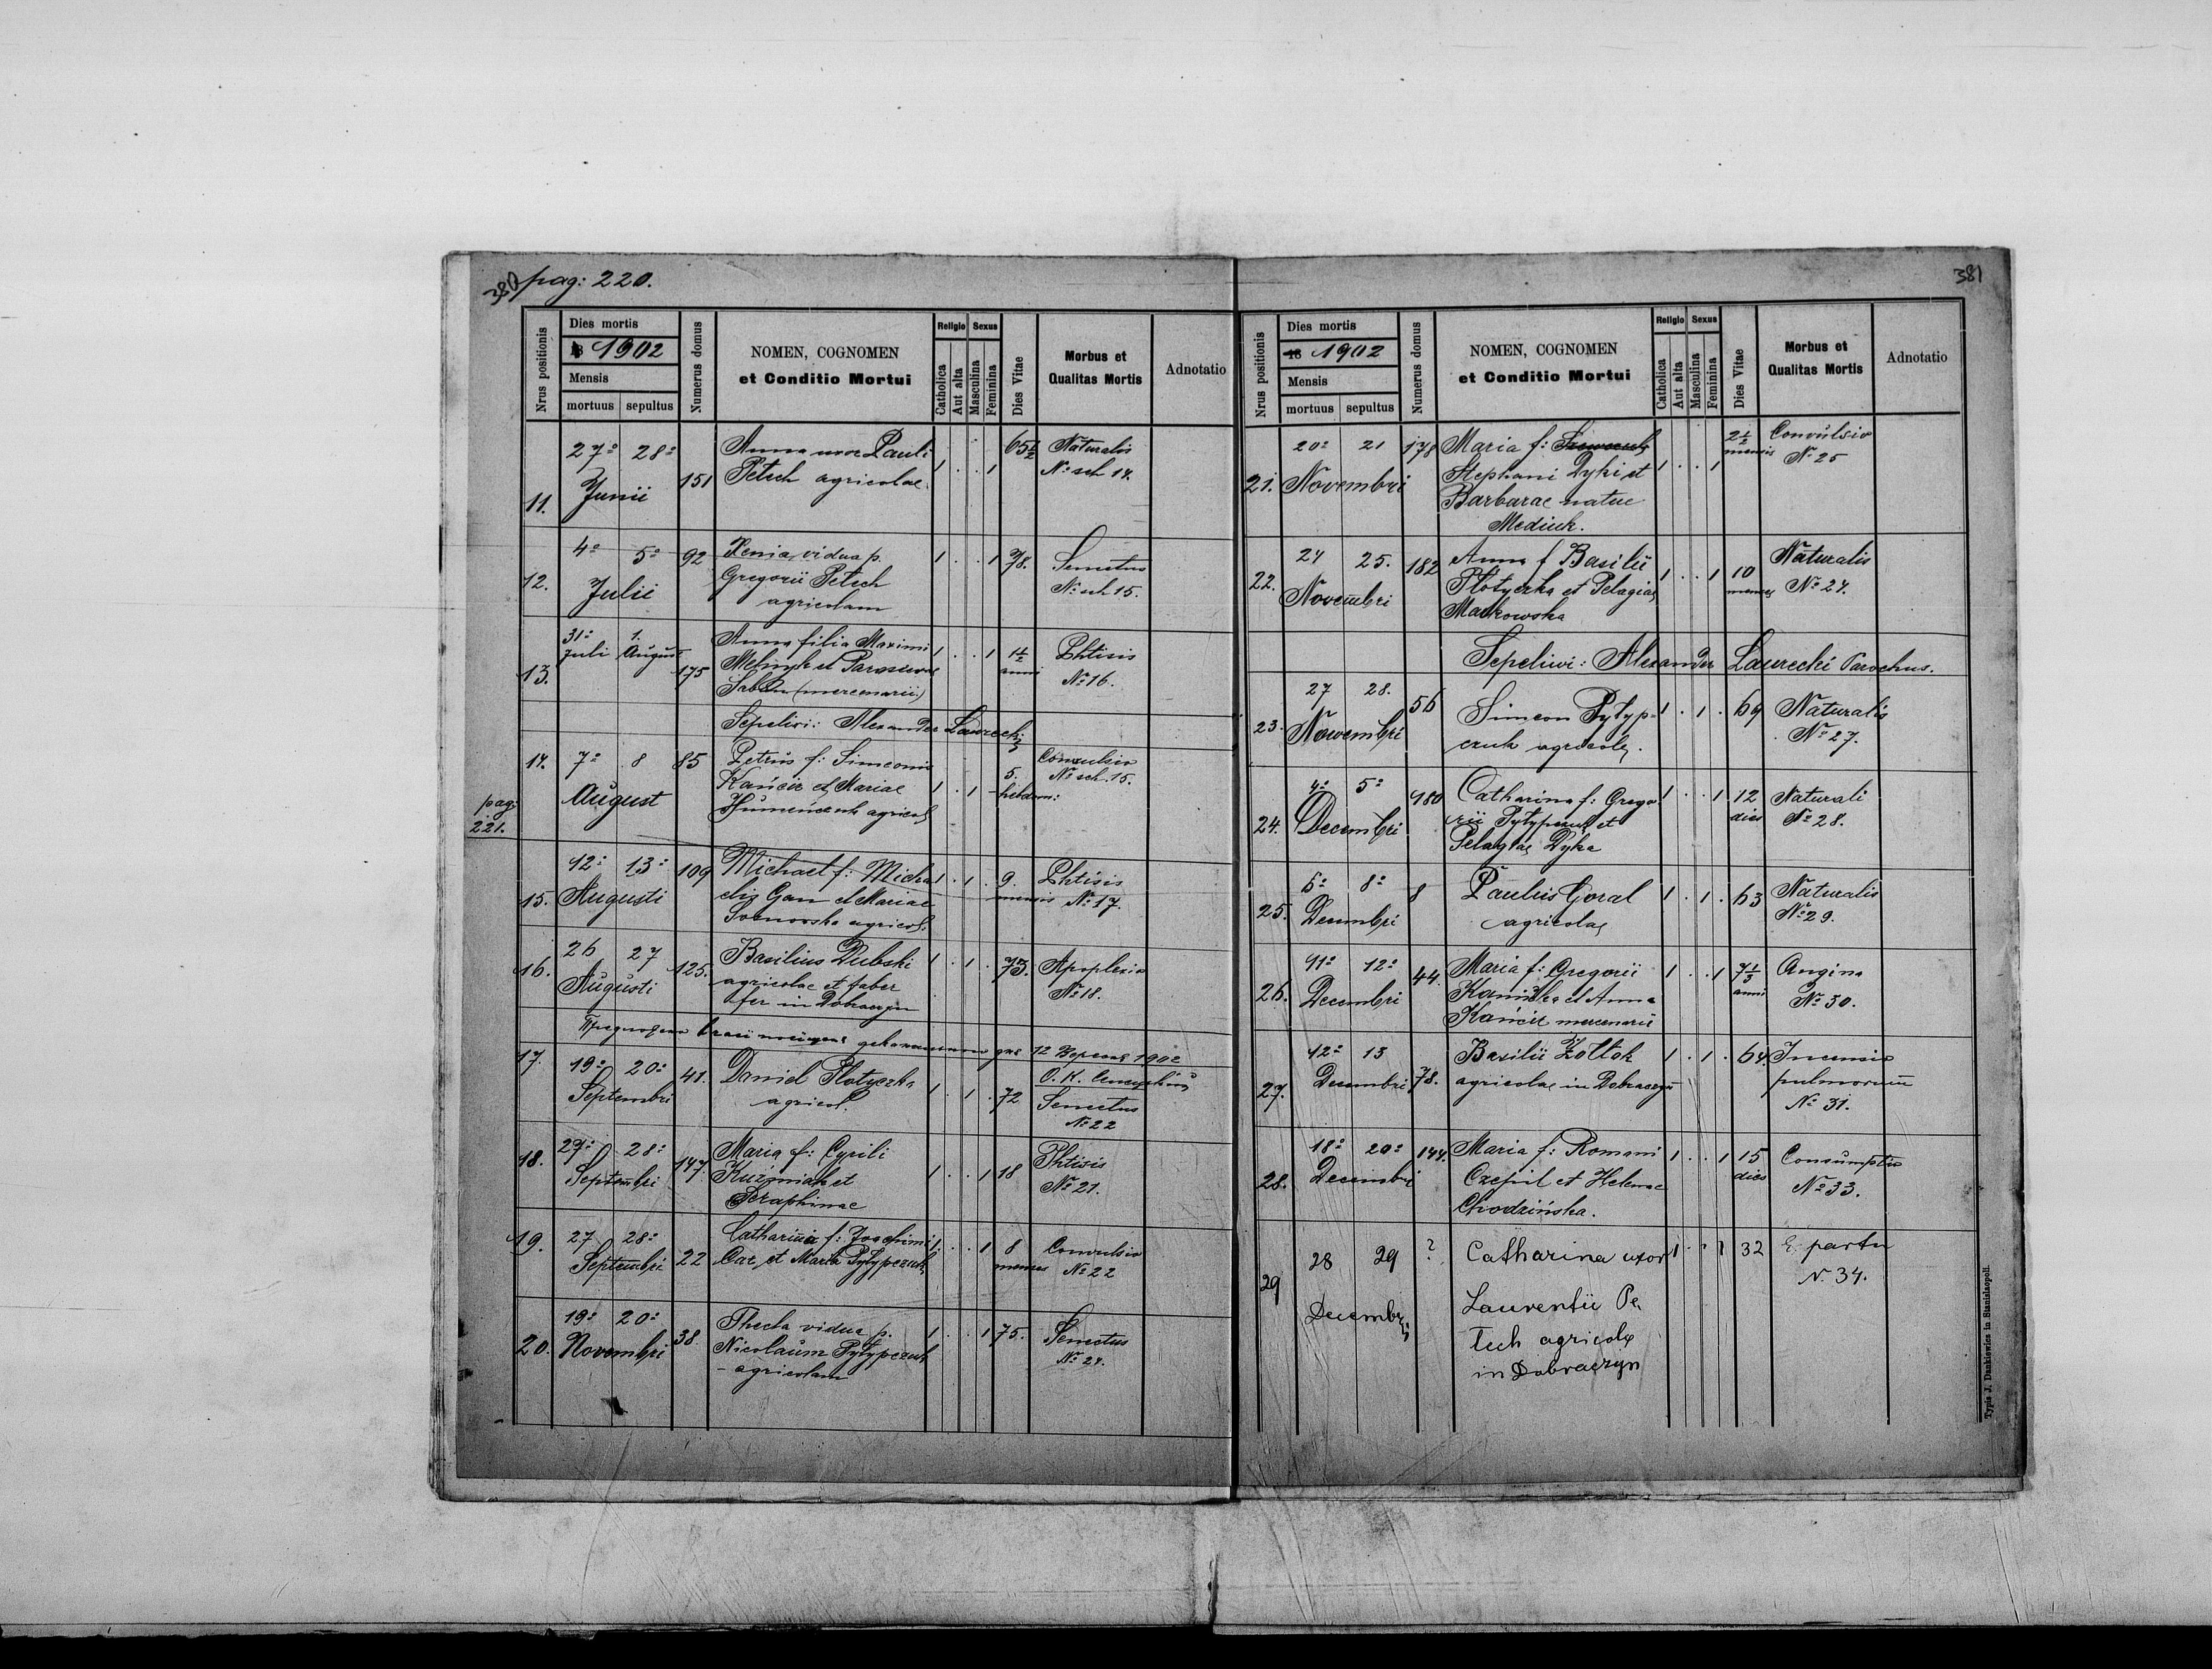 380 pag: 220.
Nrus positionis
Dies mortis
18 1902
Mensis
mortuus sepultus
Numerus domus
NOMEN, COGNOMEN
et Conditio Mortui
Religio Sexus
Catholica
Aut alta
Masculina
Feminina
Dies Vitae
Morbus et
Qualitas Mortis
Adnotatio
27° 28° Anna uxor Pauli 65½ Naturalis
11. Junii 151 Petech agricolae 1 . . 1 N° sch 14.
4° 5° 92 Xenia vidua p. 1 . . 1 78. Senectus
12. Julii Gregorii Petech N° sch 15.
agricolam
31° 1. Anna filia Maximi
Juli August Melnyk et Parascevae 1 . . 1 1½ Phtisis
13. 175 (mercenarii) anni N° 16.
Sepelivi: Alexander Laurecki
14. 7° 8 85 Petrus f: Simeonis Convulsio
August Kańcir et Mariae 1 . 1 . 5. N° sch. 15.
pag: agricol hebdom:
221.
12° 13° 109 Michael f: Micha 1 . 1 . 9. Phtisis
15. Augusti elis Gan et Mariae mensis N° 17.
Sosnowska agricol.
26 27 Basilius Dubski 1 . 1 . 73. Apoplexia
16. Augusti 125. agricolae et faber N° 18.
fer in Dobraczyn
12 1902
17. 19° 20° 41. Daniel Plotyczka
Septembri agricol. 1 . 1 . 72 Senectus
N° 22
18. 27° 28° Maria f: Cyrili Phtisis
Septembri 147. Kuźmiak et 1 . . 1 18 N° 21.
Seraphinae
19. 27 28° Catharina f: Joachimi 1 . . 1 8 Convulsio
Septembri 22 Car et Maria Pytypczuk menses N° 22
19° 20° Thecla vidua p. 1 . . 1 75. Senectus
20. Novembri 38 Nicolaum Pytypczuk N° 24.
- agricolam
381
Nrus positionis
Dies mortis
18 1902
Mensis
mortuus sepultus
Numerus domus
NOMEN, COGNOMEN
et Conditio Mortui
Religio Sexus
Catholica
Aut alta
Masculina
Feminina
Dies Vitae
Morbus et
Qualitas Mortis
Adnotatio
20° 21 178 Maria f: 2½ Convulsio
21. Novembri Stephani Dyki et 1 . . 1 mensis N° 25
Barbarae natae
Mediuk.
24 25. 182 Anna f Basilii Naturalis
22. Novembri Plotyczka et Pelagiae 1 . . 1 10 N° 24.
Mackowska menses
Sepeliwi: Alexander Laurecki Parochus.
27 28. 56 Simeon Pytyp- 1 . 1 . 69 Naturalis
23. Nowembri czuk agricola. N° 27.
4° 5° 180 Catharina f: Grego 1 . . 1 12 Naturali
24. Decembri rii Pytypczuk et dies N° 28.
Pelagiae Dyka
6° 8° 8 Paulus Goral 1 . 1 . 63 Naturalis
25. Decembri agricolae N° 29.
11° 12° 44. Maria f: Gregorii 1 . . 1 7⅓ Angina
26. Decembri et Anna anni N° 30.
Kańcir mercenarii
12° 13 Basilii Zoltok 1 . 1 . 64.
27. Decembri 78. agricolae in Dobraczyn pulmorum
N° 31.
18° 20° 144. Maria f: Romani 1 . . 1 15 Consumptio
28. Decembri Czepil et Helenae dies N° 33.
Chodzińska.
28 29 ? Catharina uxor 1 . . 1 32 E partu
29 Decembris Laurentii Pe N. 34.
tech agricolae
in Dobraczyn
Typis J. Dankiewicz in Stanislaopoli.